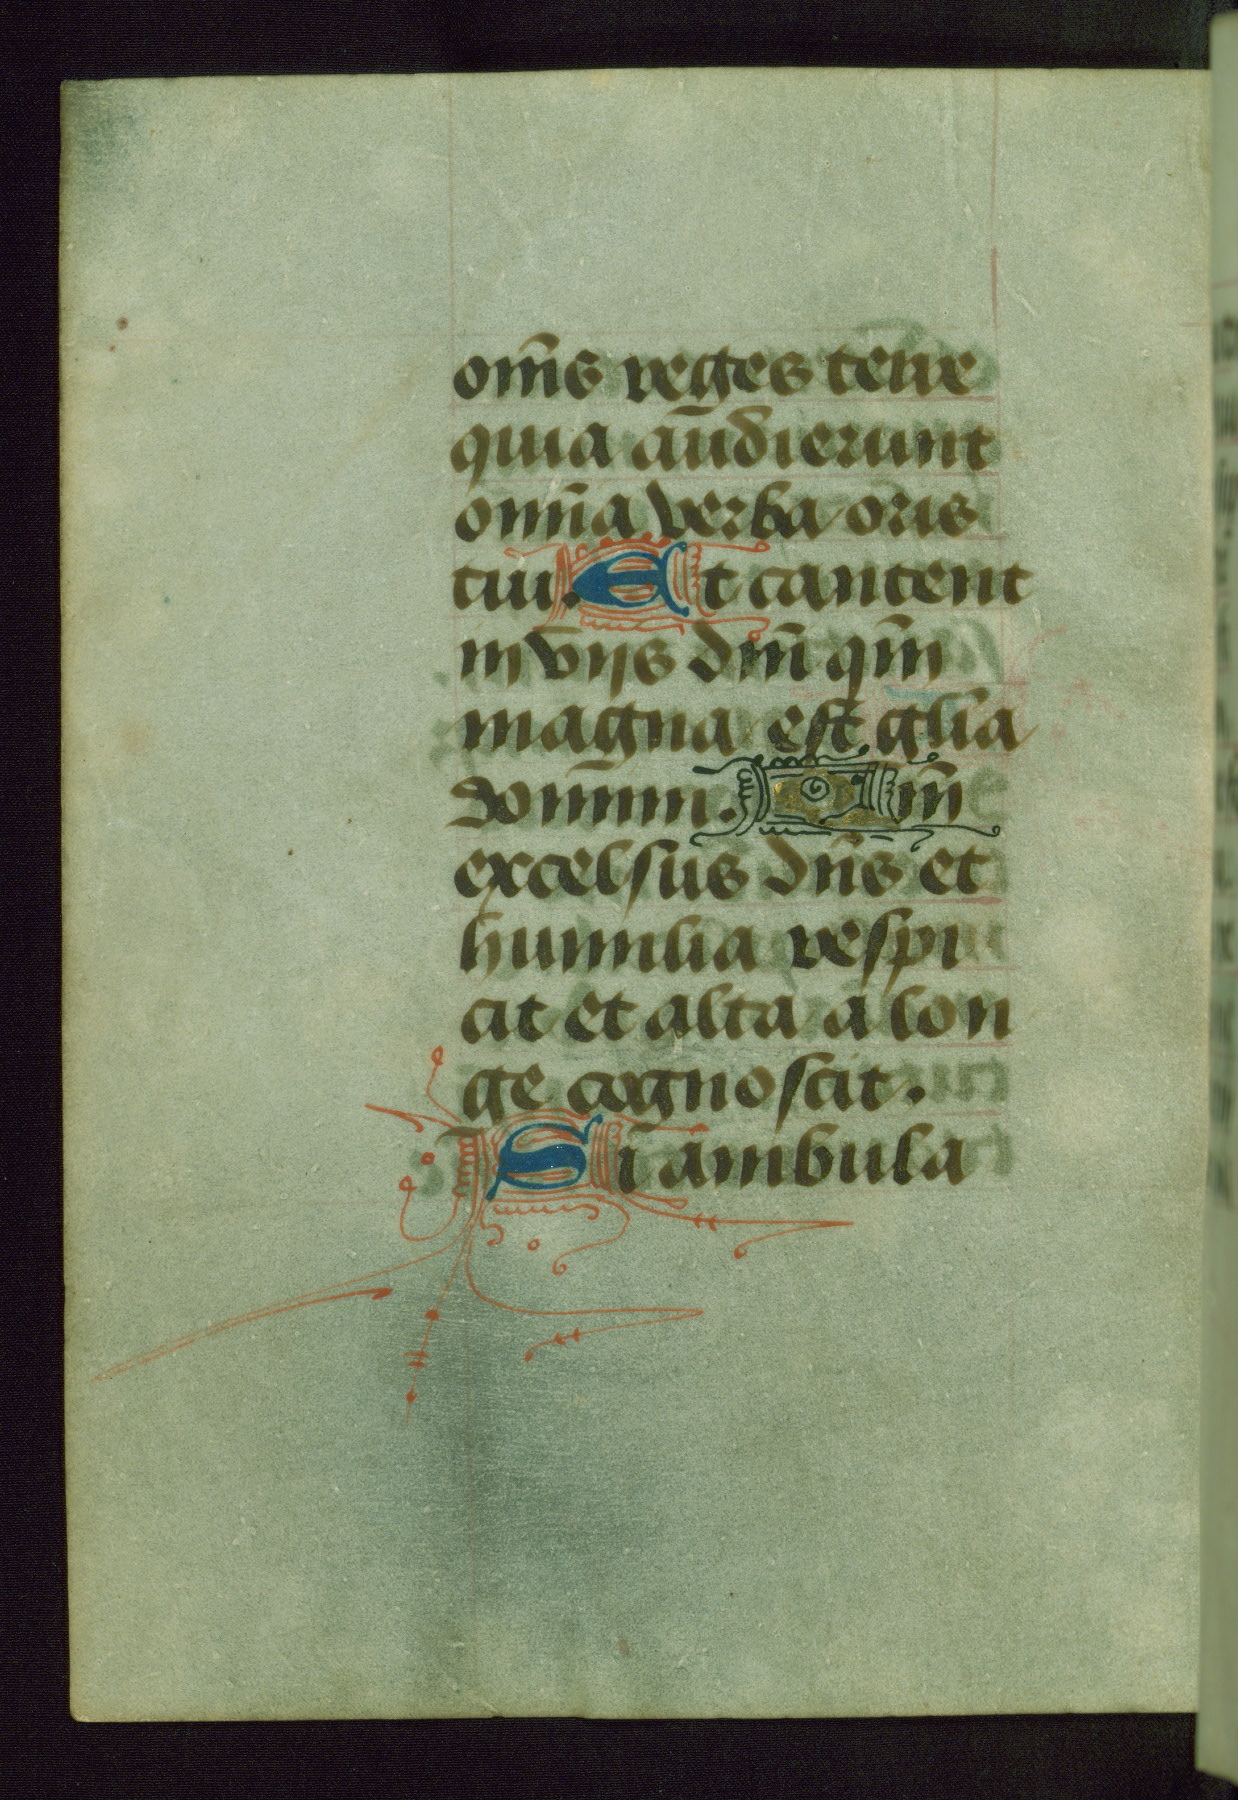 om̄s reges terre
quia au̅dierunt
omn̄a verba oris
tui. Et cantent
in vijs dn̄i qm̄
magna est glīa
domini. Qm̄
excelsus dn̄s et
humilia respi
cit et alta a lon
ge cognoscit.
Si ambula